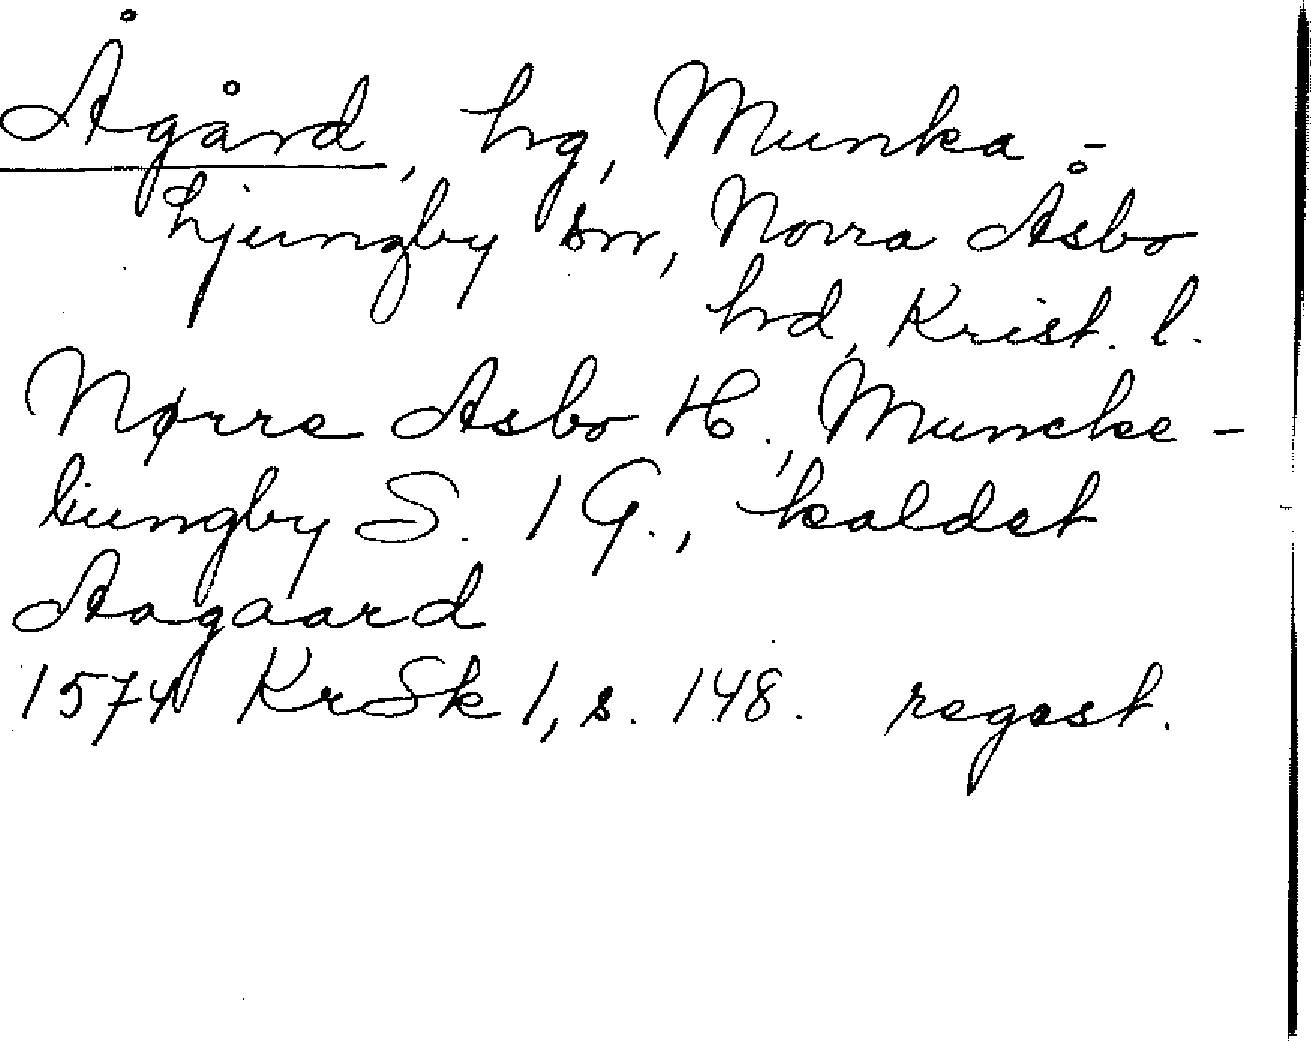 Ågård, hg, Munka-
Ljungby sn, Norra Åsbo
hd, Krist. l.
Nørre Asbo H., Muncke-
liungby S. 1 G., kaldet
Aagaard
1574 KrSk 1, s. 148. regest.